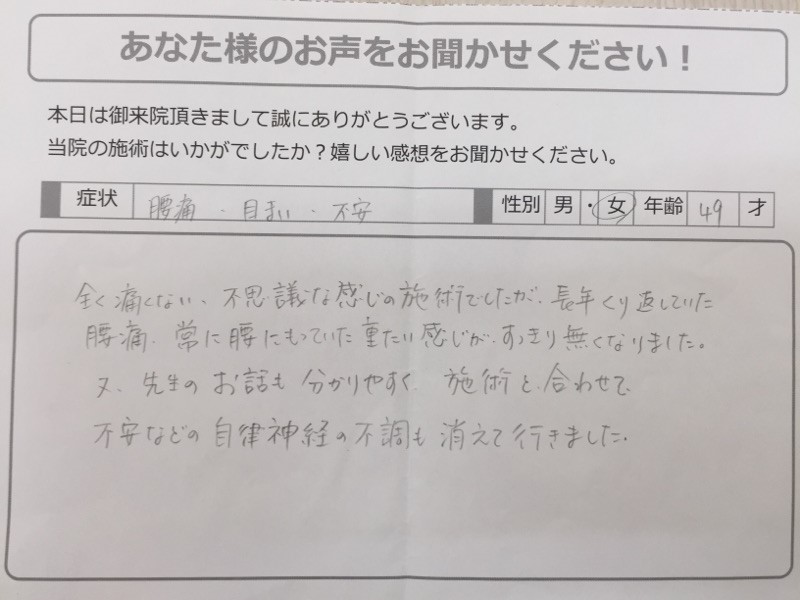 あなた様のお声をお聞かせください！
本日は御来院頂きまして誠にありがとうございます。
当院の施術はいかがでしたか？嬉しい感想をお聞かせください。
症状 腰痛・目まい・不安 性別 男・女 年齢 49 才
全く痛くない、不思議な感じの施術でしたが、長年くり返していた
腰痛、常に腰にもっていた重たい感じが、すっきり無くなりました。
又、先生のお話も分かりやすく、施術と合わせて、
不安などの自律神経の不調も消えて行きました。